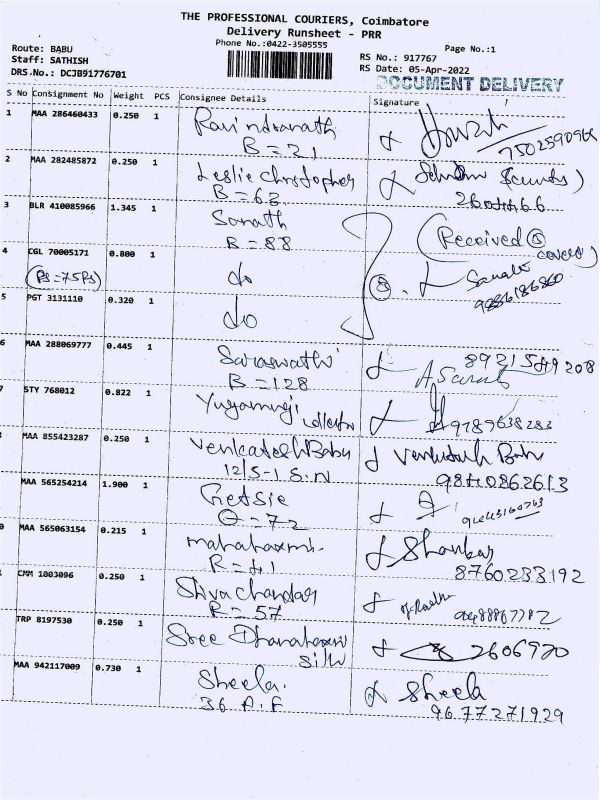 THE PROFESSIONAL COURIERS, Coimbatore
Delivery Runsheet - PRR
Phone No.:0422-3505555
Page No.:1
Route: BABU
Staff: SATHISH
DRS.No.: DCJB91776701
RS No.: 917767
RS Date: 05-Apr-2022
DOCUMENT DELIVERY
S No Consignment No Weight PCS Consignee Details Signature
1 MAA 286460433 0.250 1 Ravindranath
B = 21
7502590966
2 MAA 282485872 0.250 1 Leslie Christopher
B = 63
3 BLR 410085966 1.345 1 Sarath
B = 88
(Received ⑤ covers)
4 CGL 70005171 0.800 1 do
5 PGT 3131110 0.320 1 do
6 MAA 288069777 0.445 1 Saraswathi
B = 128
A. Sarath
7 STY 768012 0.822 1
9789638283
MAA 855423287 0.250 1 Venkatesh Babu Venkatesh Babu
12/5-1 S.N 9840862613
MAA 565254214 1.900 1 Getsie
= 72
MAA 565063154 0.215 1 Mahalaxmi Shankar
R = 41 8760233192
CMM 1003096 0.250 1 Shiva Chandar
R = 57
TRP 8197530 0.250 1 Sree Dhanalaxmi 2606920
silk
MAA 942117009 0.730 1 Sheela. Sheela
36 A.F 9677271929